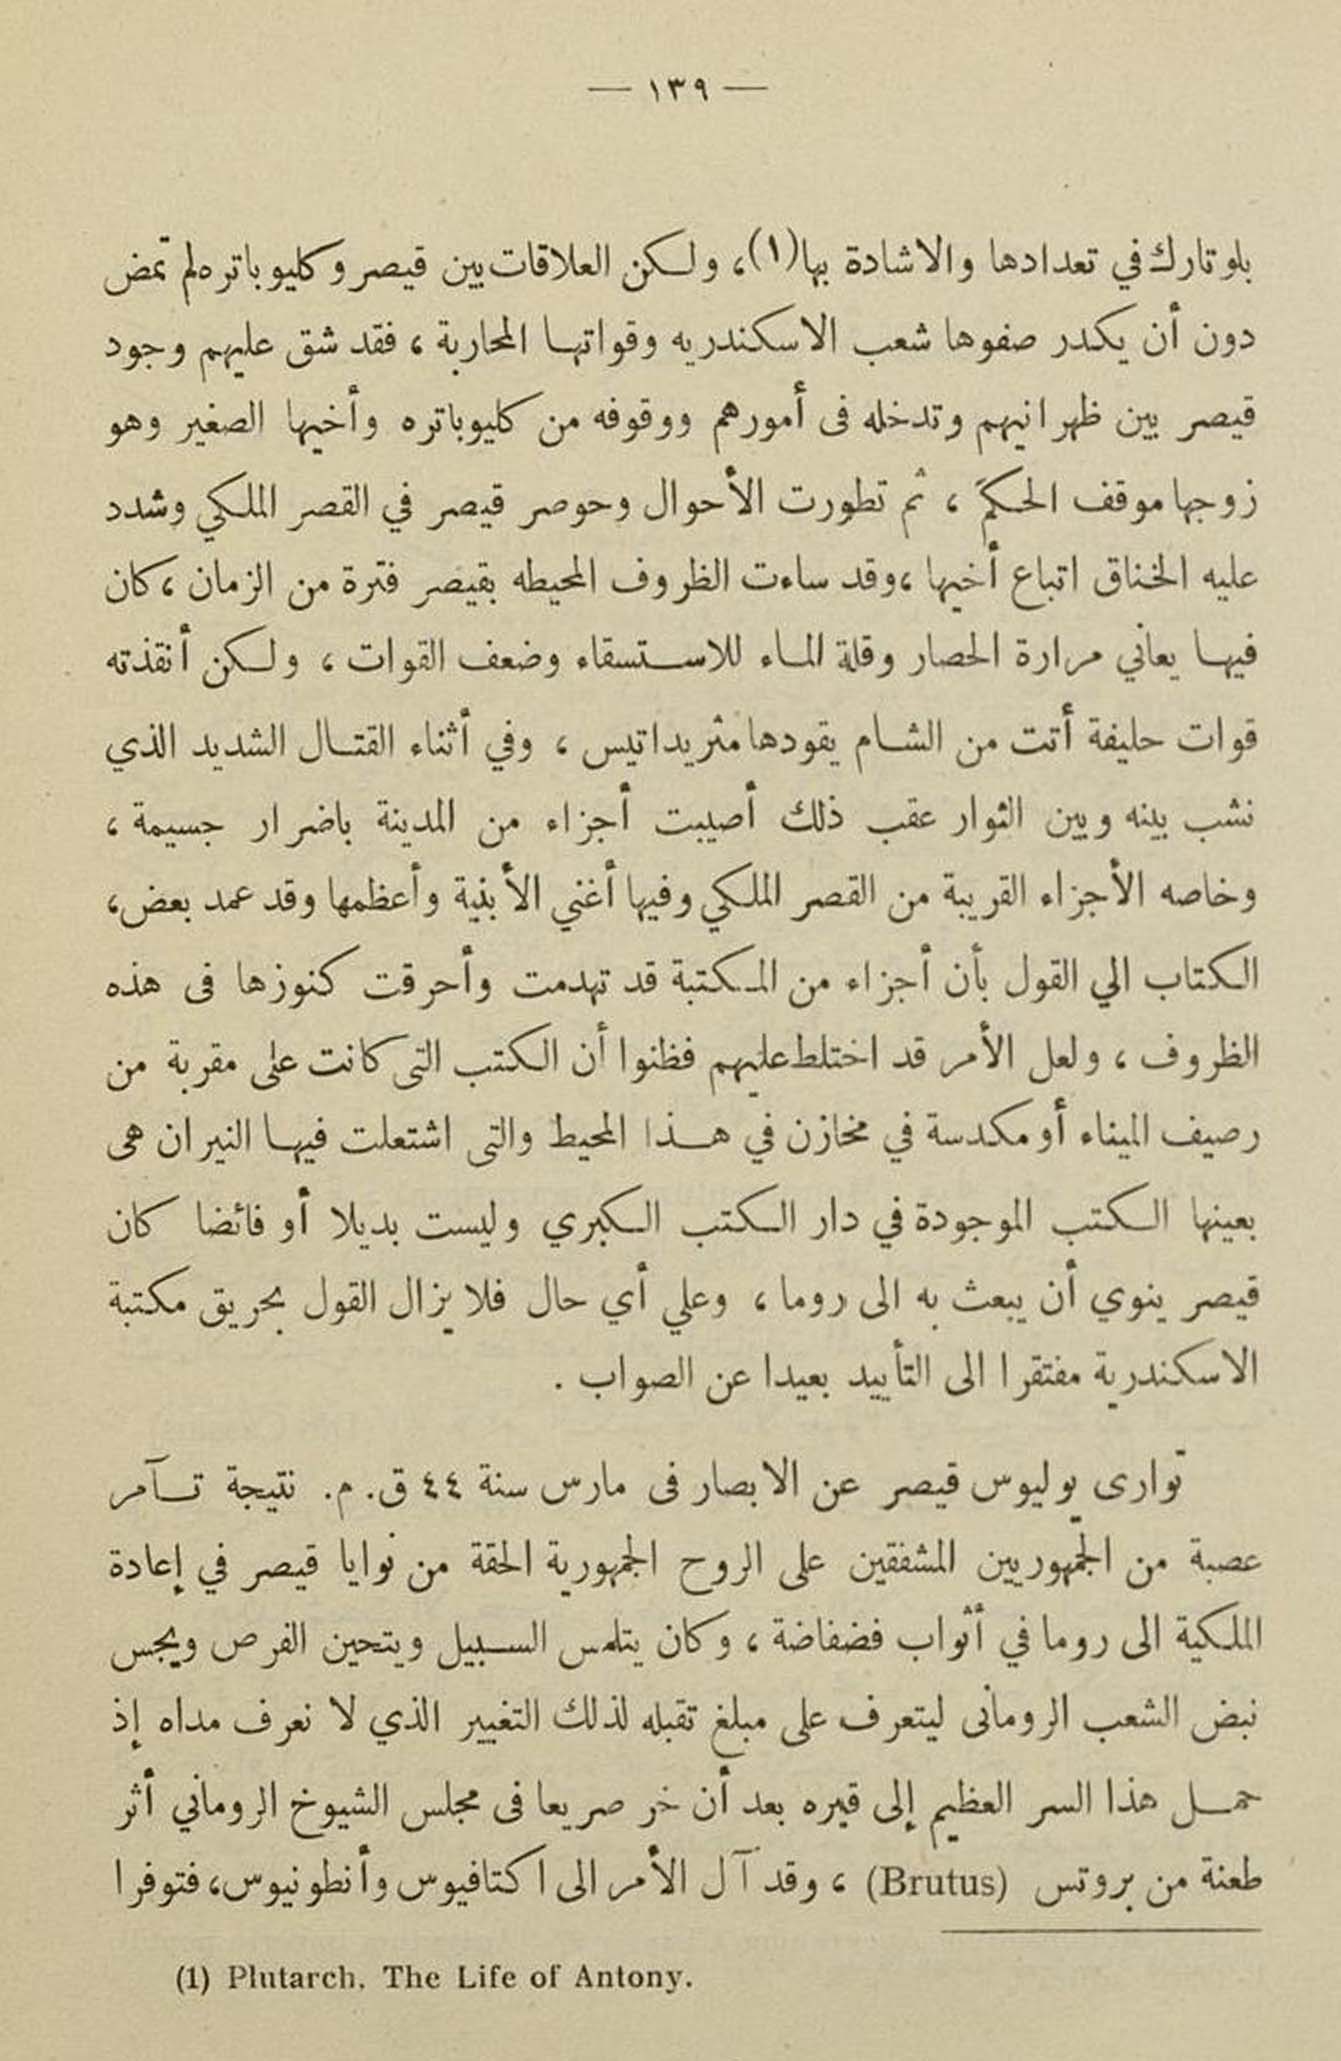 — ١٣٩ —
بلوتارك في تعدادها والاشادة بها(١)، ولكن العلاقات بين قيصر وكليوباتره لم تمض
دون أن يكدر صفوها شعب الاسكندريه وقواتها المحاربة ، فقد شق عليهم وجود
قيصر بين ظهرانيهم وتدخله فى أمورهم ووقوفه من كليوباتره وأخيها الصغير وهو
زوجها موقف الحكَم ، ثم تطورت الأحوال وحوصر قيصر في القصر الملكي وشدد
عليه الخناق اتباع أخيها ، وقد ساءت الظروف المحيطه بقيصر فترة من الزمان ، كان
فيها يعاني مرارة الحصار وقلة الماء للاستسقاء وضعف القوات ، ولكن أنقذته
قوات حليفة أتت من الشام يقودها مثريداتيس ، وفي أثناء القتال الشديد الذي
نشب بينه وبين الثوار عقب ذلك أصيبت أجزاء من المدينة باضرار جسيمة ،
وخاصه الأجزاء القريبة من القصر الملكي وفيها أغني الأبنية وأعظمها وقد عمد بعض،
الكتاب الي القول بأن أجزاء من المكتبة قد تهدمت وأحرقت كنوزها فى هذه
الظروف ، ولعل الأمر قد اختلط عليهم فظنوا أن الكتب التى كانت على مقربة من
رصيف الميناء أو مكدسة في مخازن في هذا المحيط والتى اشتعلت فيها النيران هى
بعينها الكتب الموجودة في دار الكتب الكبري وليست بديلا أو فائضا كان
قيصر ينوي أن يبعث به الى روما ، وعلي أي حال فلا يزال القول بحريق مكتبة
الاسكندرية مفتقرا الى التأييد بعيدا عن الصواب .
توارى يوليوس قيصر عن الابصار فى مارس سنة ٤٤ ق. م. نتيجة تآمر
عصبة من الجمهوريين المشفقين على الروح الجمهورية الحقة من نوايا قيصر في إعادة
الملكية الى روما في أثواب فضفاضة ، وكان يتلمس السبيل ويتحين الفرص ويجس
نبض الشعب الرومانى ليتعرف على مبلغ تقبله لذلك التغيير الذي لا نعرف مداه إذ
حمل هذا السر العظيم إلى قبره بعد أن خر صريعا فى مجلس الشيوخ الروماني أثر
طعنة من بروتس (Brutus) ، وقد آل الأمر الى اكتافيوس وأنطونيوس، فتوفرا
(1) Plutarch. The Life of Antony.